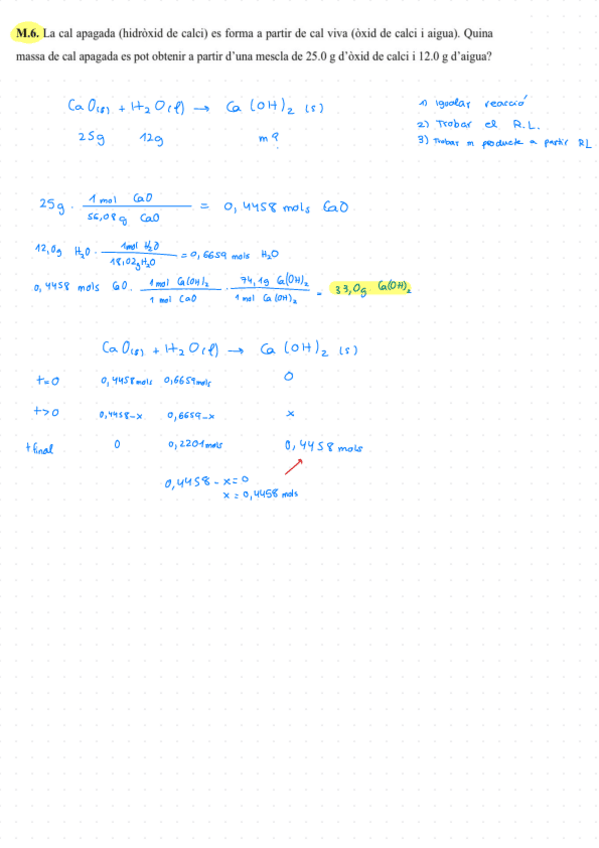 M.6. La cal apagada (hidròxid de calci) es forma a partir de cal viva (òxid de calci i aigua). Quina
massa de cal apagada es pot obtenir a partir d'una mescla de 25.0 g d'òxid de calci i 12.0 g d'aigua?
CaO(s) + H2O(l) → Ca(OH)2 (s)
25g 12g m?
1) Igualar reacció
2) Trobar el R.L.
3) Trobar m producte a partir RL
25g · 1 mol CaO / 56,08g CaO = 0,4458 mols CaO
12,0g H2O · 1mol H2O / 18,02g H2O = 0,6659 mols H2O
0,4458 mols CaO · 1 mol Ca(OH)2 / 1 mol CaO · 74,1g Ca(OH)2 / 1 mol Ca(OH)2 = 33,0g Ca(OH)2
CaO(s) + H2O(l) → Ca(OH)2 (s)
t=0 0,4458mols 0,6659mols 0
t>0 0,4458-x 0,6659-x x
t final 0 0,2201mols 0,4458 mols
0,4458 - x = 0
x = 0,4458 mols